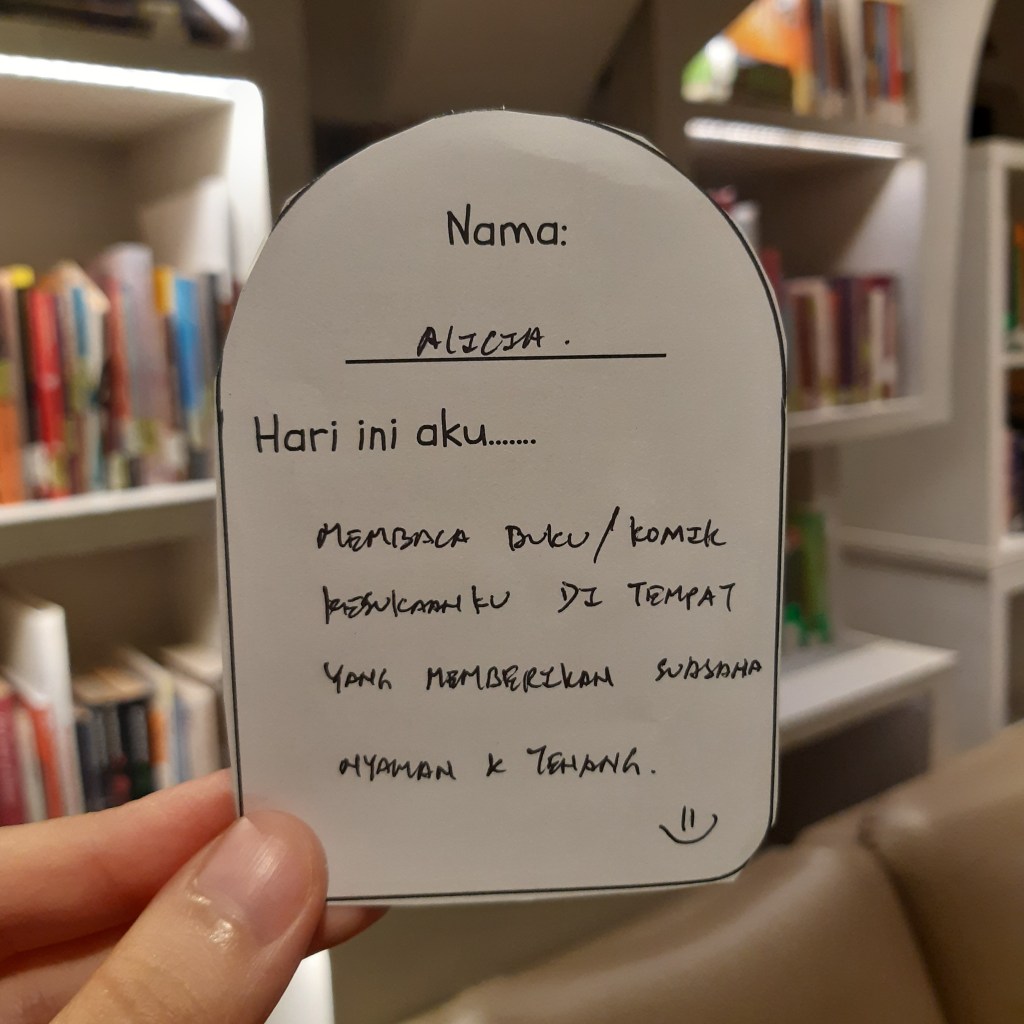 Nama:
ALICIA.
Hari ini aku.......
MEMBACA BUKU/KOMIK
KESUKAANKU DI TEMPAT
YANG MEMBERIKAN SUASANA
NYAMAN & TENANG.